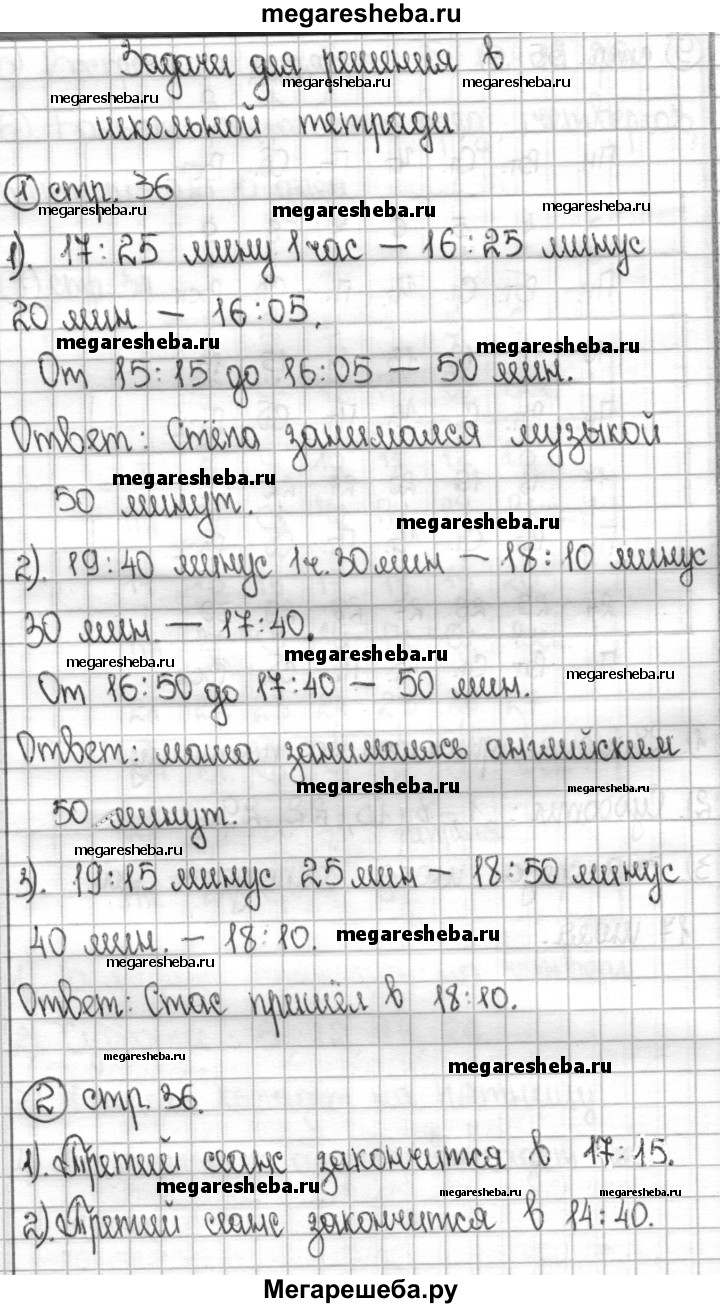 megaresheba.ru
Задачи для решения в
megaresheba.ru megaresheba.ru megaresheba.ru
школьной тетради
1 стр. 36
megaresheba.ru megaresheba.ru megaresheba.ru
1). 17:25 мину 1 час – 16:25 минус
20 мин – 16:05.
megaresheba.ru megaresheba.ru
От 15:15 до 16:05 – 50 мин.
Ответ: Стёпа занимался музыкой
megaresheba.ru
50 минут.
megaresheba.ru
2). 19:40 минус 1ч. 30 мин – 18:10 минус
30 мин. – 17:40.
megaresheba.ru megaresheba.ru megaresheba.ru
От 16:50 до 17:40 – 50 мин.
Ответ: маша занималась английским
megaresheba.ru megaresheba.ru
50 минут.
megaresheba.ru
3). 19:15 минус 25 мин – 18:50 минус
40 мин. – 18:10. megaresheba.ru
megaresheba.ru
Ответ: Стас пришёл в 18:10.
megaresheba.ru megaresheba.ru
2 стр. 36.
1). Третий сеанс закончится в 17:15.
megaresheba.ru megaresheba.ru megaresheba.ru
2). Третий сеанс закончится в 14:40.
Мегарешеба.ру